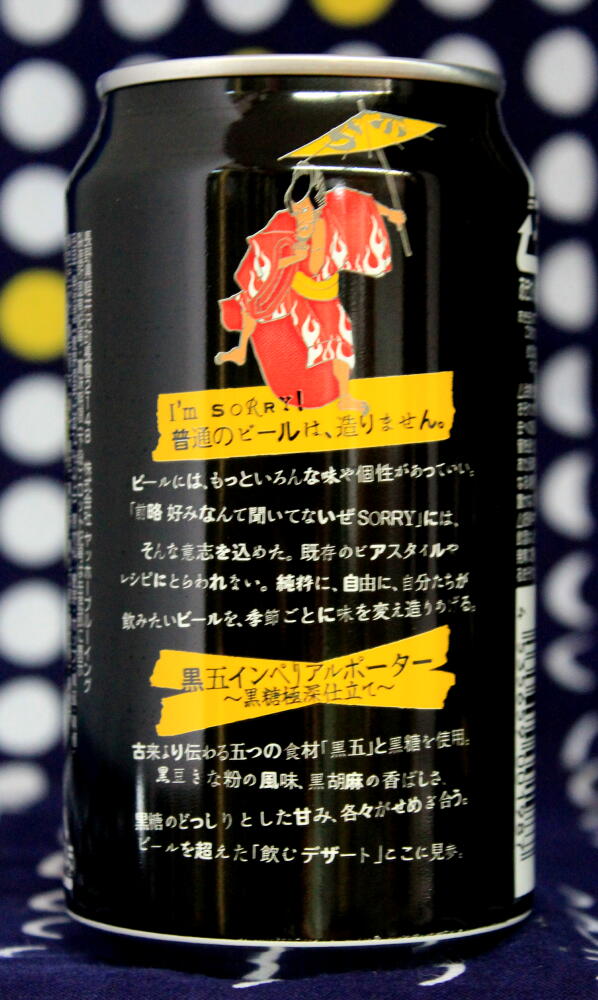 I'm SORRY!
普通のビールは、造りません。
ビールには、もっといろんな味や個性があっていい。
「前略 好みなんて聞いてないぜSORRY」には、
そんな意志を込めた。既存のビアスタイルや
レシピにとらわれない。純粋に、自由に、自分たちが
飲みたいビールを、季節ごとに味を変え造りあげる。
黒五インペリアルポーター
〜黒糖極深仕立て〜
古来より伝わる五つの食材「黒五」と黒糖を使用。
黒豆きな粉の風味、黒胡麻の香ばしさ、
黒糖のどっしりとした甘み、各々がせめぎ合う。
ビールを超えた「飲むデザート」ここに見参。
長野県軽井沢町長倉2148 株式会社ヤッホーブルーイング